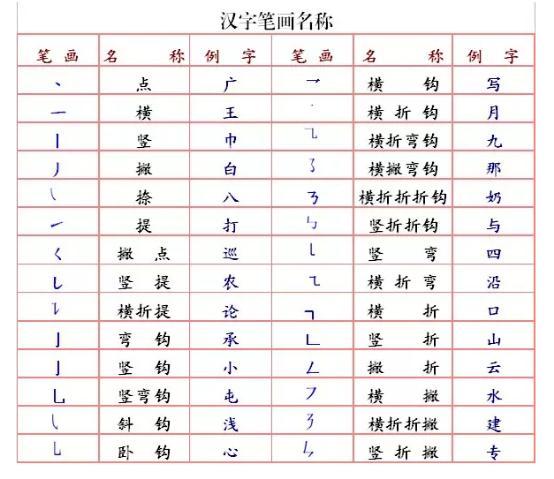 汉字笔画名称
笔画 名称 例字 笔画 名称 例字
丶 点 广 乛 横钩 写
一 横 王 横折钩 月
丨 竖 巾 ㇈ 横折弯钩 九
丿 撇 白 ㇌ 横撇弯钩 那
㇏ 捺 八 ㇡ 横折折折钩 奶
㇀ 提 打 ㇉ 竖折折钩 与
㇛ 撇点 巡 ㇄ 竖弯 四
㇙ 竖提 农 ㇍ 横折弯 沿
㇊ 横折提 论 ㇕ 横折 口
亅 弯钩 承 ㇗ 竖折 山
亅 竖钩 小 ㇜ 撇折 云
乚 竖弯钩 屯 ㇇ 横撇 水
㇂ 斜钩 浅 ㇋ 横折折撇 建
㇃ 卧钩 心 ㇞ 竖折撇 专